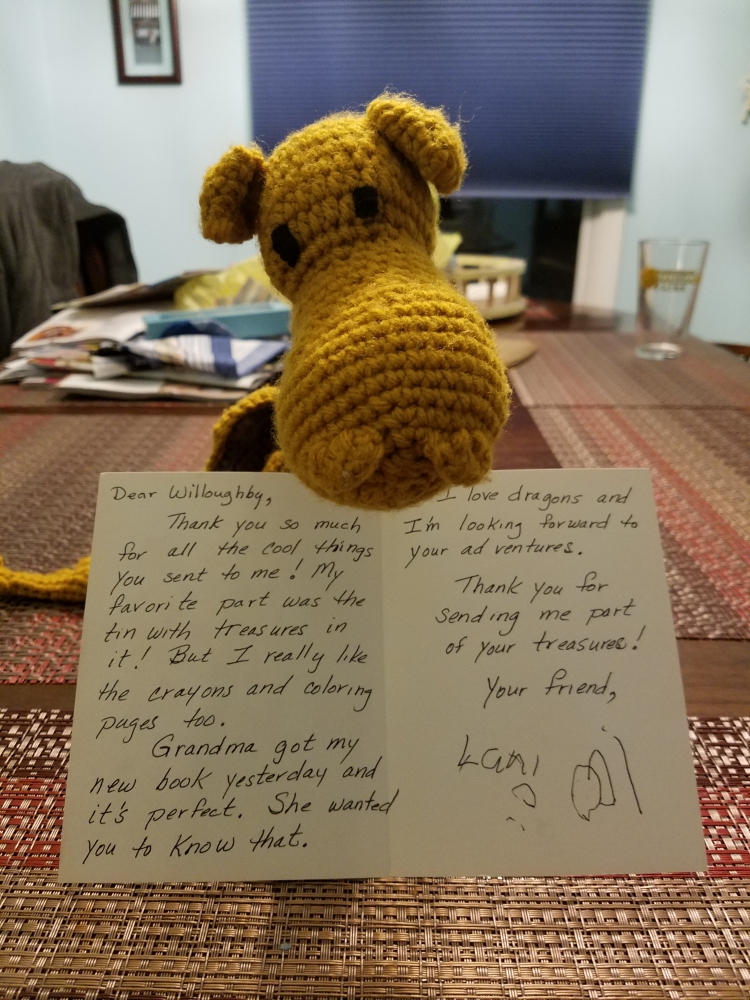 Dear Willoughby,
Thank you so much
for all the cool things
you sent to me! My
favorite part was the
tin with treasures in
it! But I really like
the crayons and coloring
pages too.
Grandma got my
new book yesterday and
it's perfect. She wanted
you to know that.
I love dragons and
I'm looking forward to
your adventures.
Thank you for
sending me part
of your treasures!
Your friend,